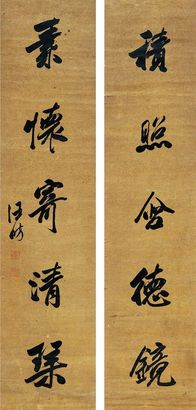 積照含德鏡
素懷寄清琴
汪昉